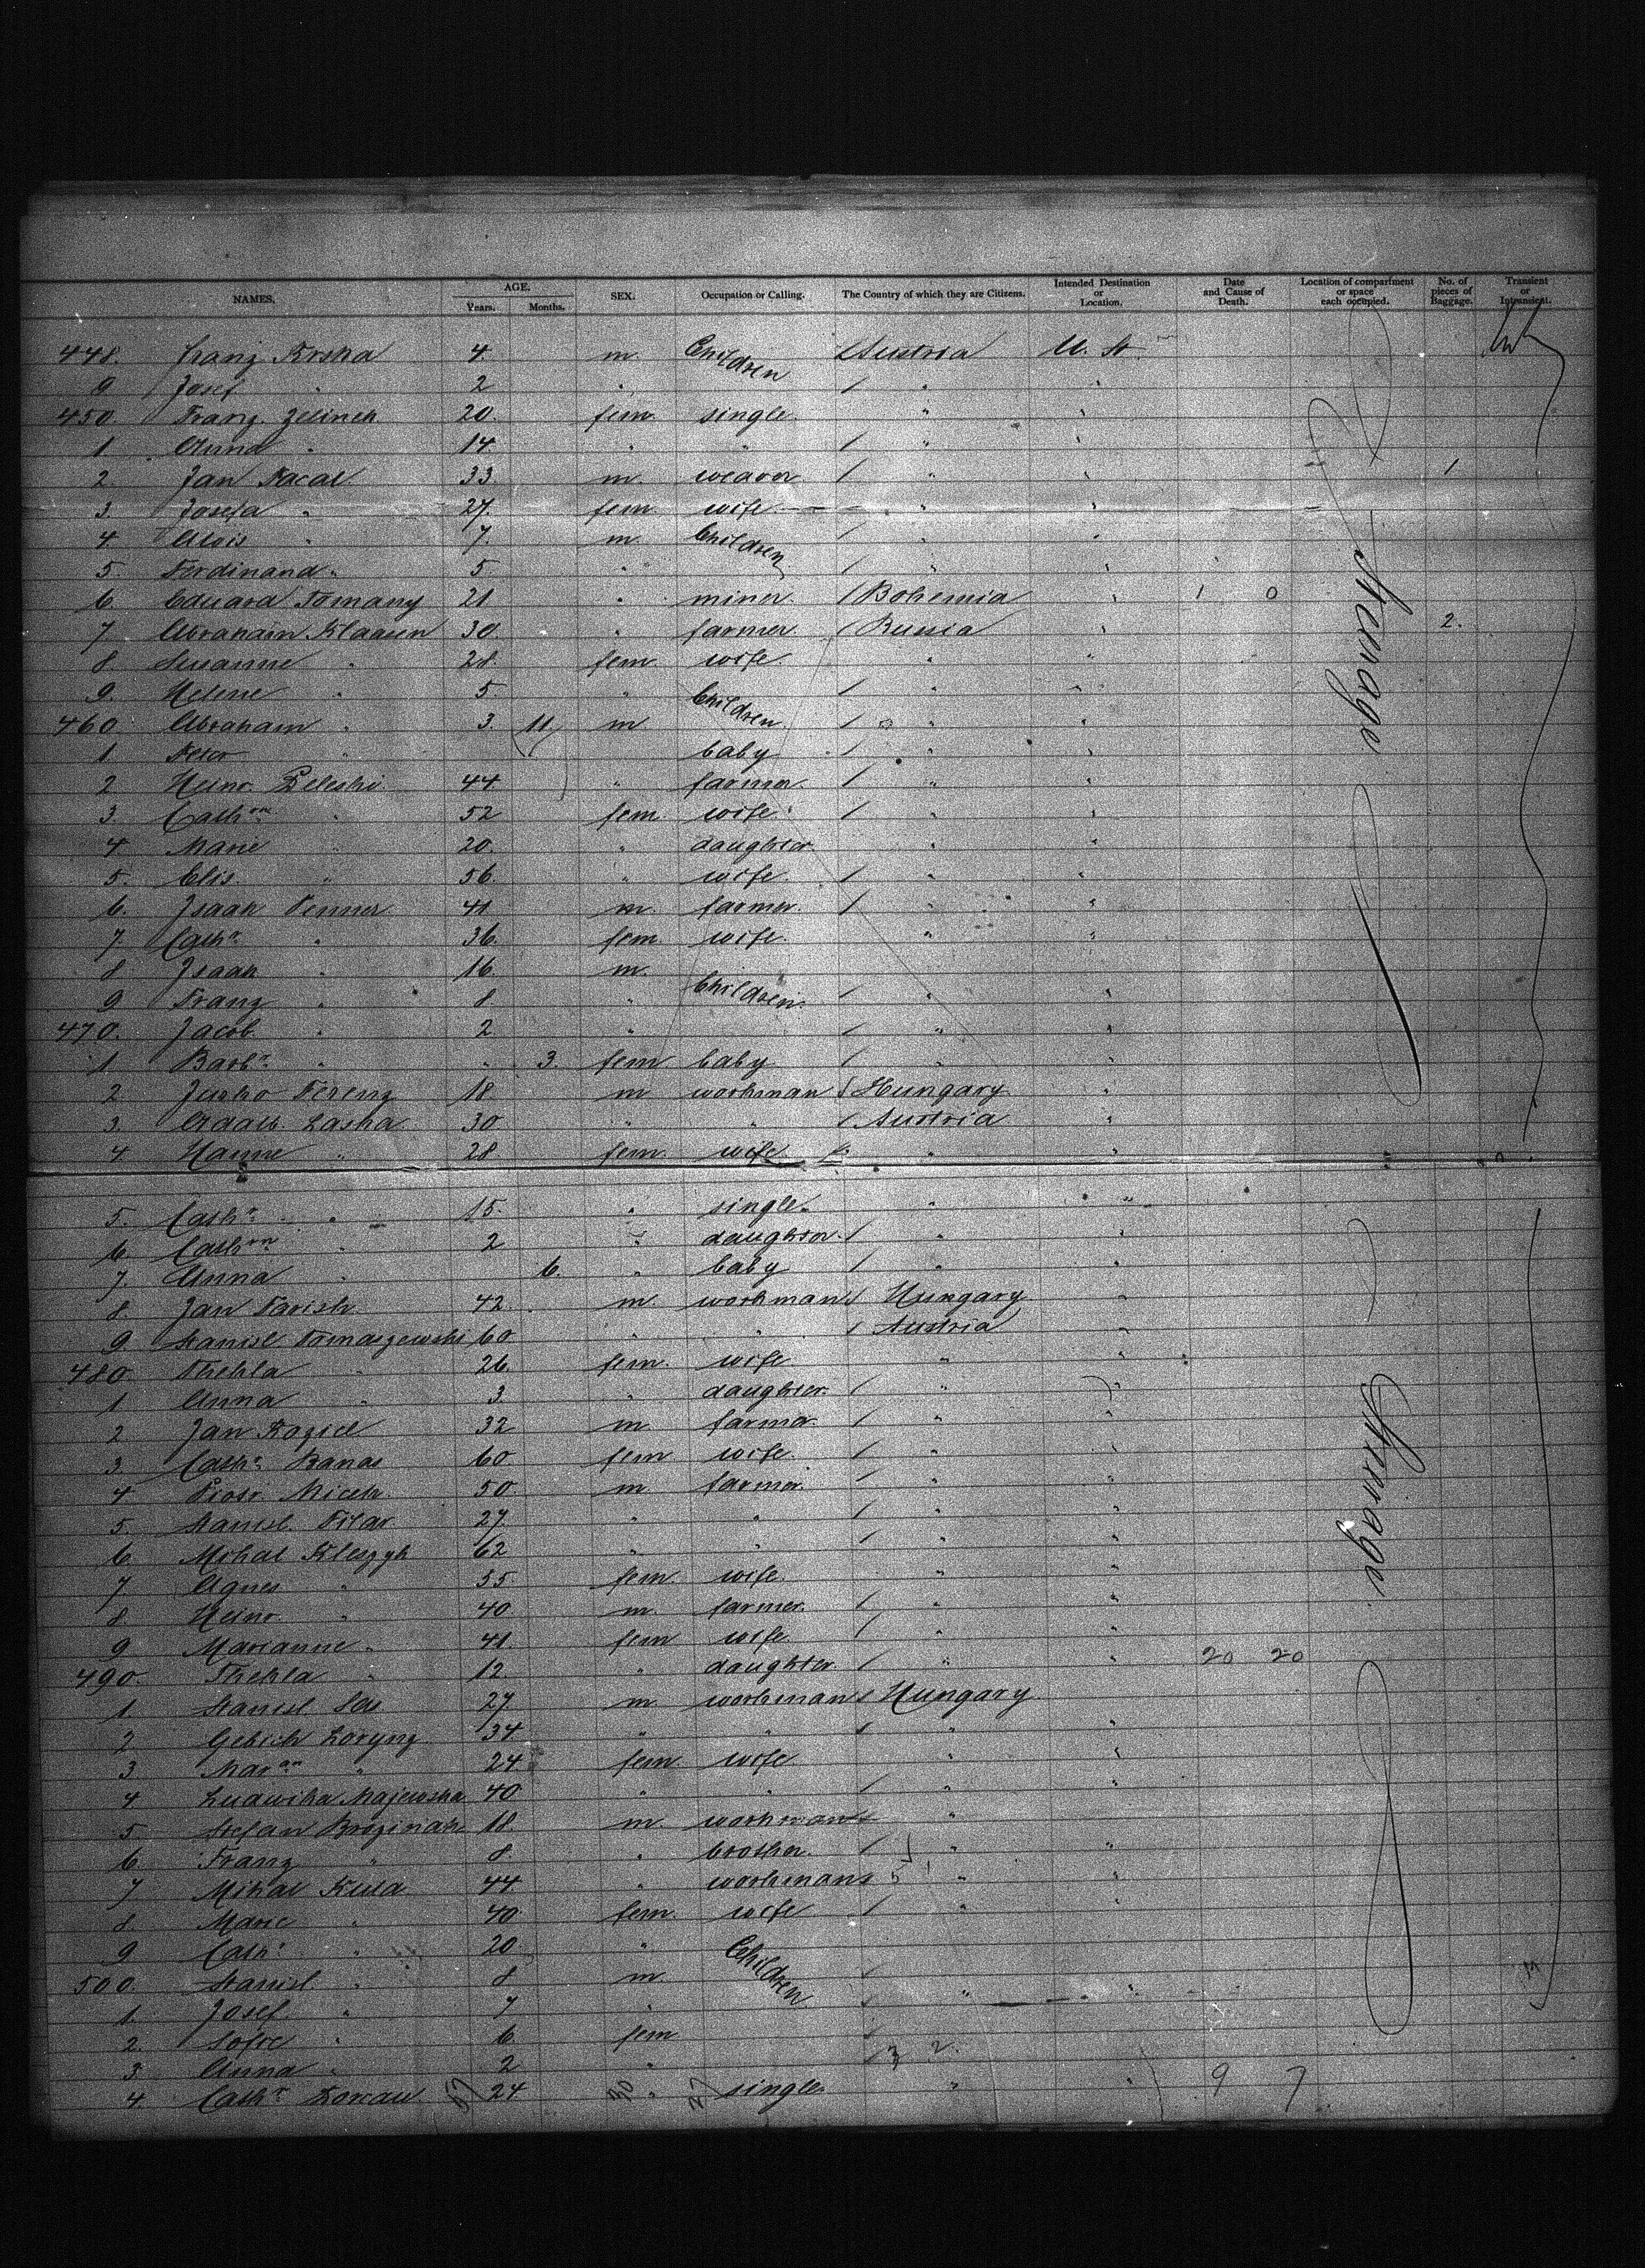 NAMES. AGE. Years. Months. SEX. Occupation or Calling. The Country of which they are Citizens. Intended Destination or Location. Date and Cause of Death. Location of compartment or space each occupied. No. of pieces of Baggage. Transient or Intransient.
448. Franz Krska 4. m. Children Austria U. St.
9 Josef " 2 " "  "
450. Franz. Zelinek 20. fem. single. " "
1 Anna " 14. " " " "
2. Jan Pacal 33 m. weaver " " 1
3. Josefa " 27. fem. wife " "
4. Alois " 7. m. Children " "
5. Ferdinand " 5 " " "
6. Eduard Tomany 21 " miner. Bohemia " 1 0
7 Abraham Klaasen 30. " farmer. Russia " 2.
8 Susanne " 28. fem. wife. " "
9. Helene " 5 " Children " "
460 Abraham " 3. m. " "
1. Peter " 11 baby " "
2 Heinr. Zeleski 44 " farmer. " "
3. Cath " 52 fem. wife. " "
4 Marie " 20. " daughter. " "
5. Elis. " 56. " wife. " "
6. Isaak Penner 41 m. farmer. " "
7. Cath. " 36. fem. wife. " "
8 Isaak " 16 m.
9 Franz " 8. " Children. " "
470. Jacob. " 2 " " "
1 Barb. " " 3. fem baby " "
2 Jusko Ferenz 18. m workman Hungary "
3. Adalb. Laska 30 " " Austria "
4 Hanne " 28 fem. wife " "
5. Cath. " 15. " single. " "
6. Cath " 2 " daughter. " "
7. Anna " 6. " baby " "
8. Jan Parish 42. m. workman Hungary "
9 Stanisl Tomaszewski 60 " " Austria "
480. Thekla " 26. fem. wife " "
1 Anna " 3 " daughter. " "
2 Jan Koziel 32 m. farmer. " "
3. Cath. Banas 60 fem wife. " "
4 Piotr. Micek 50. m farmer. " "
5. Stanisl. Pilar 27. " " " "
6. Mihal Kleszyk 62 " " " "
7 Agnes " 55. fem. wife. " "
8 Heinr. " 40 m. farmer. " "
9 Marianne " 41 fem wife. " "
490. Thekla " 12. " daughter. " " 20 20
1. Stanisl. Sas 27. m workman Hungary
2 Loryng 34 " " " "
3 Mar " 24 fem. wife " "
4 Ludwika Majewska 40 " " " "
5 Stefan Brozinak 18. m. workman "
6. Franz " 8. " brother. " "
7 Mihal Kula 44. " workman " "
8 Marie " 40 fem. wife " "
9 Cath. " 20. " Children
500. Stanisl. " 8 m " "
1. Josef. " 7 "
2. Sofie " 6. fem
3. Anna " 2 " 3 2.
4. Cath. 24 " single. " " 9 7
Steerage
Steerage